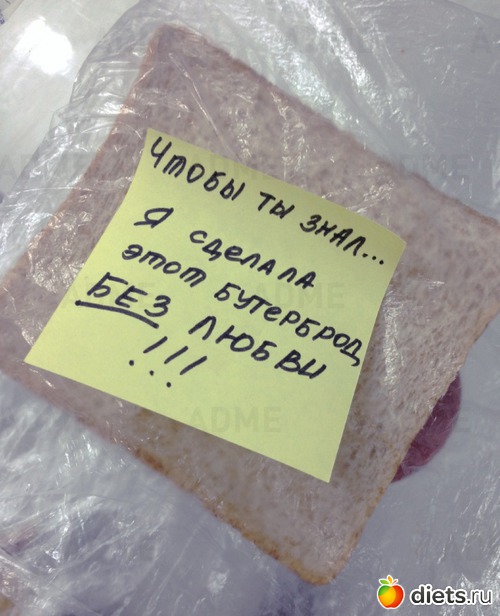 Чтобы ты знал...
Я сделала
этот бутерброд
БЕЗ любви
!!!
ADME
ADME
ADME
diets.ru